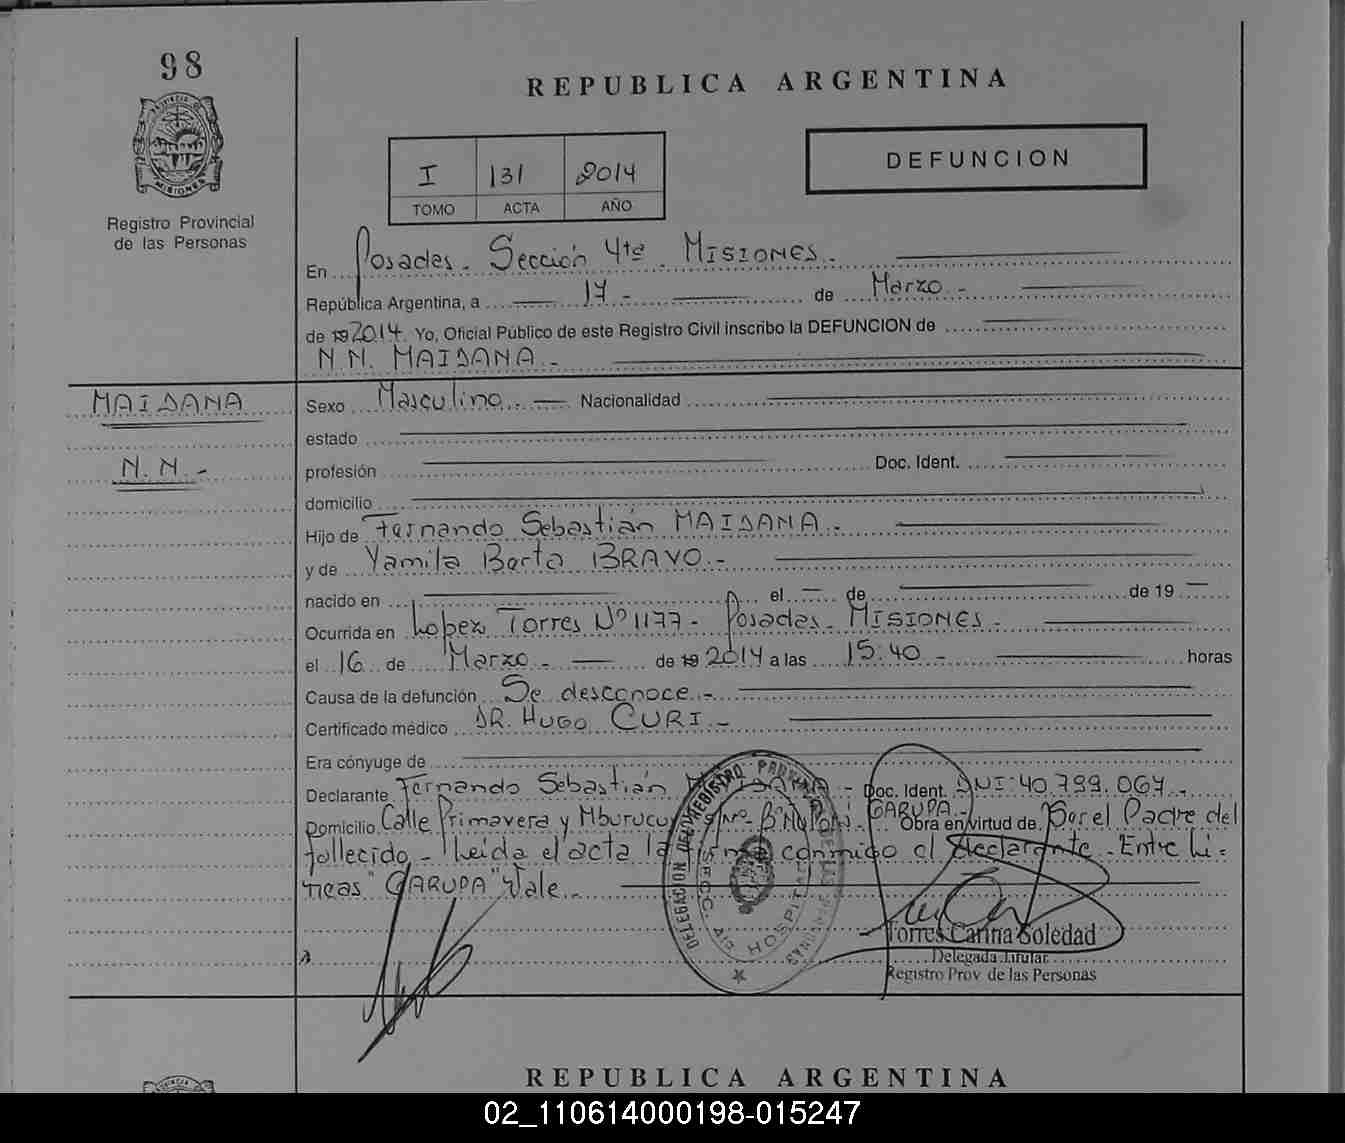 98
REPUBLICA ARGENTINA
PROVINCIA DE
MISIONES
Registro Provincial
de las Personas
I 131 2014
TOMO ACTA AÑO
DEFUNCION
En Posadas. Sección 4ta. MISIONES.-
República Argentina, a 17 - de Marzo -
de 19 2014. Yo, Oficial Público de este Registro Civil inscribo la DEFUNCION de
N.N. MAIDANA.-
MAIDANA
N.N.-
Sexo Masculino.- Nacionalidad
estado
profesión Doc. Ident.
domicilio
Hijo de Fernando Sebastián MAIDANA.-
y de Yamila Berta BRAVO.-
nacido en el - de de 19 -
Ocurrida en Lopez Torres Nº 1177 - Posadas - MISIONES -
el 16 de Marzo - de 19 2014 a las 15:40 - horas
Causa de la defunción Se desconoce.-
Certificado médico DR. HUGO CURI.-
Era cónyuge de
Declarante Fernando Sebastián - Doc. Ident. DNI: 40.799.067.-
Domicilio Calle Primavera y GARUPA.- Obra en virtud de Por el Padre del
fallecido - Leida el acta la firma conmigo el declarante - Entre Li-
neas "GARUPA" Vale.-
DELEGACION DEL REGISTRO PROVINCIAL DE LAS PERSONAS
SECC.
HOSPITAL
Torres Carina Soledad
Delegada Titular
Registro Prov de las Personas
REPUBLICA ARGENTINA
02_110614000198-015247